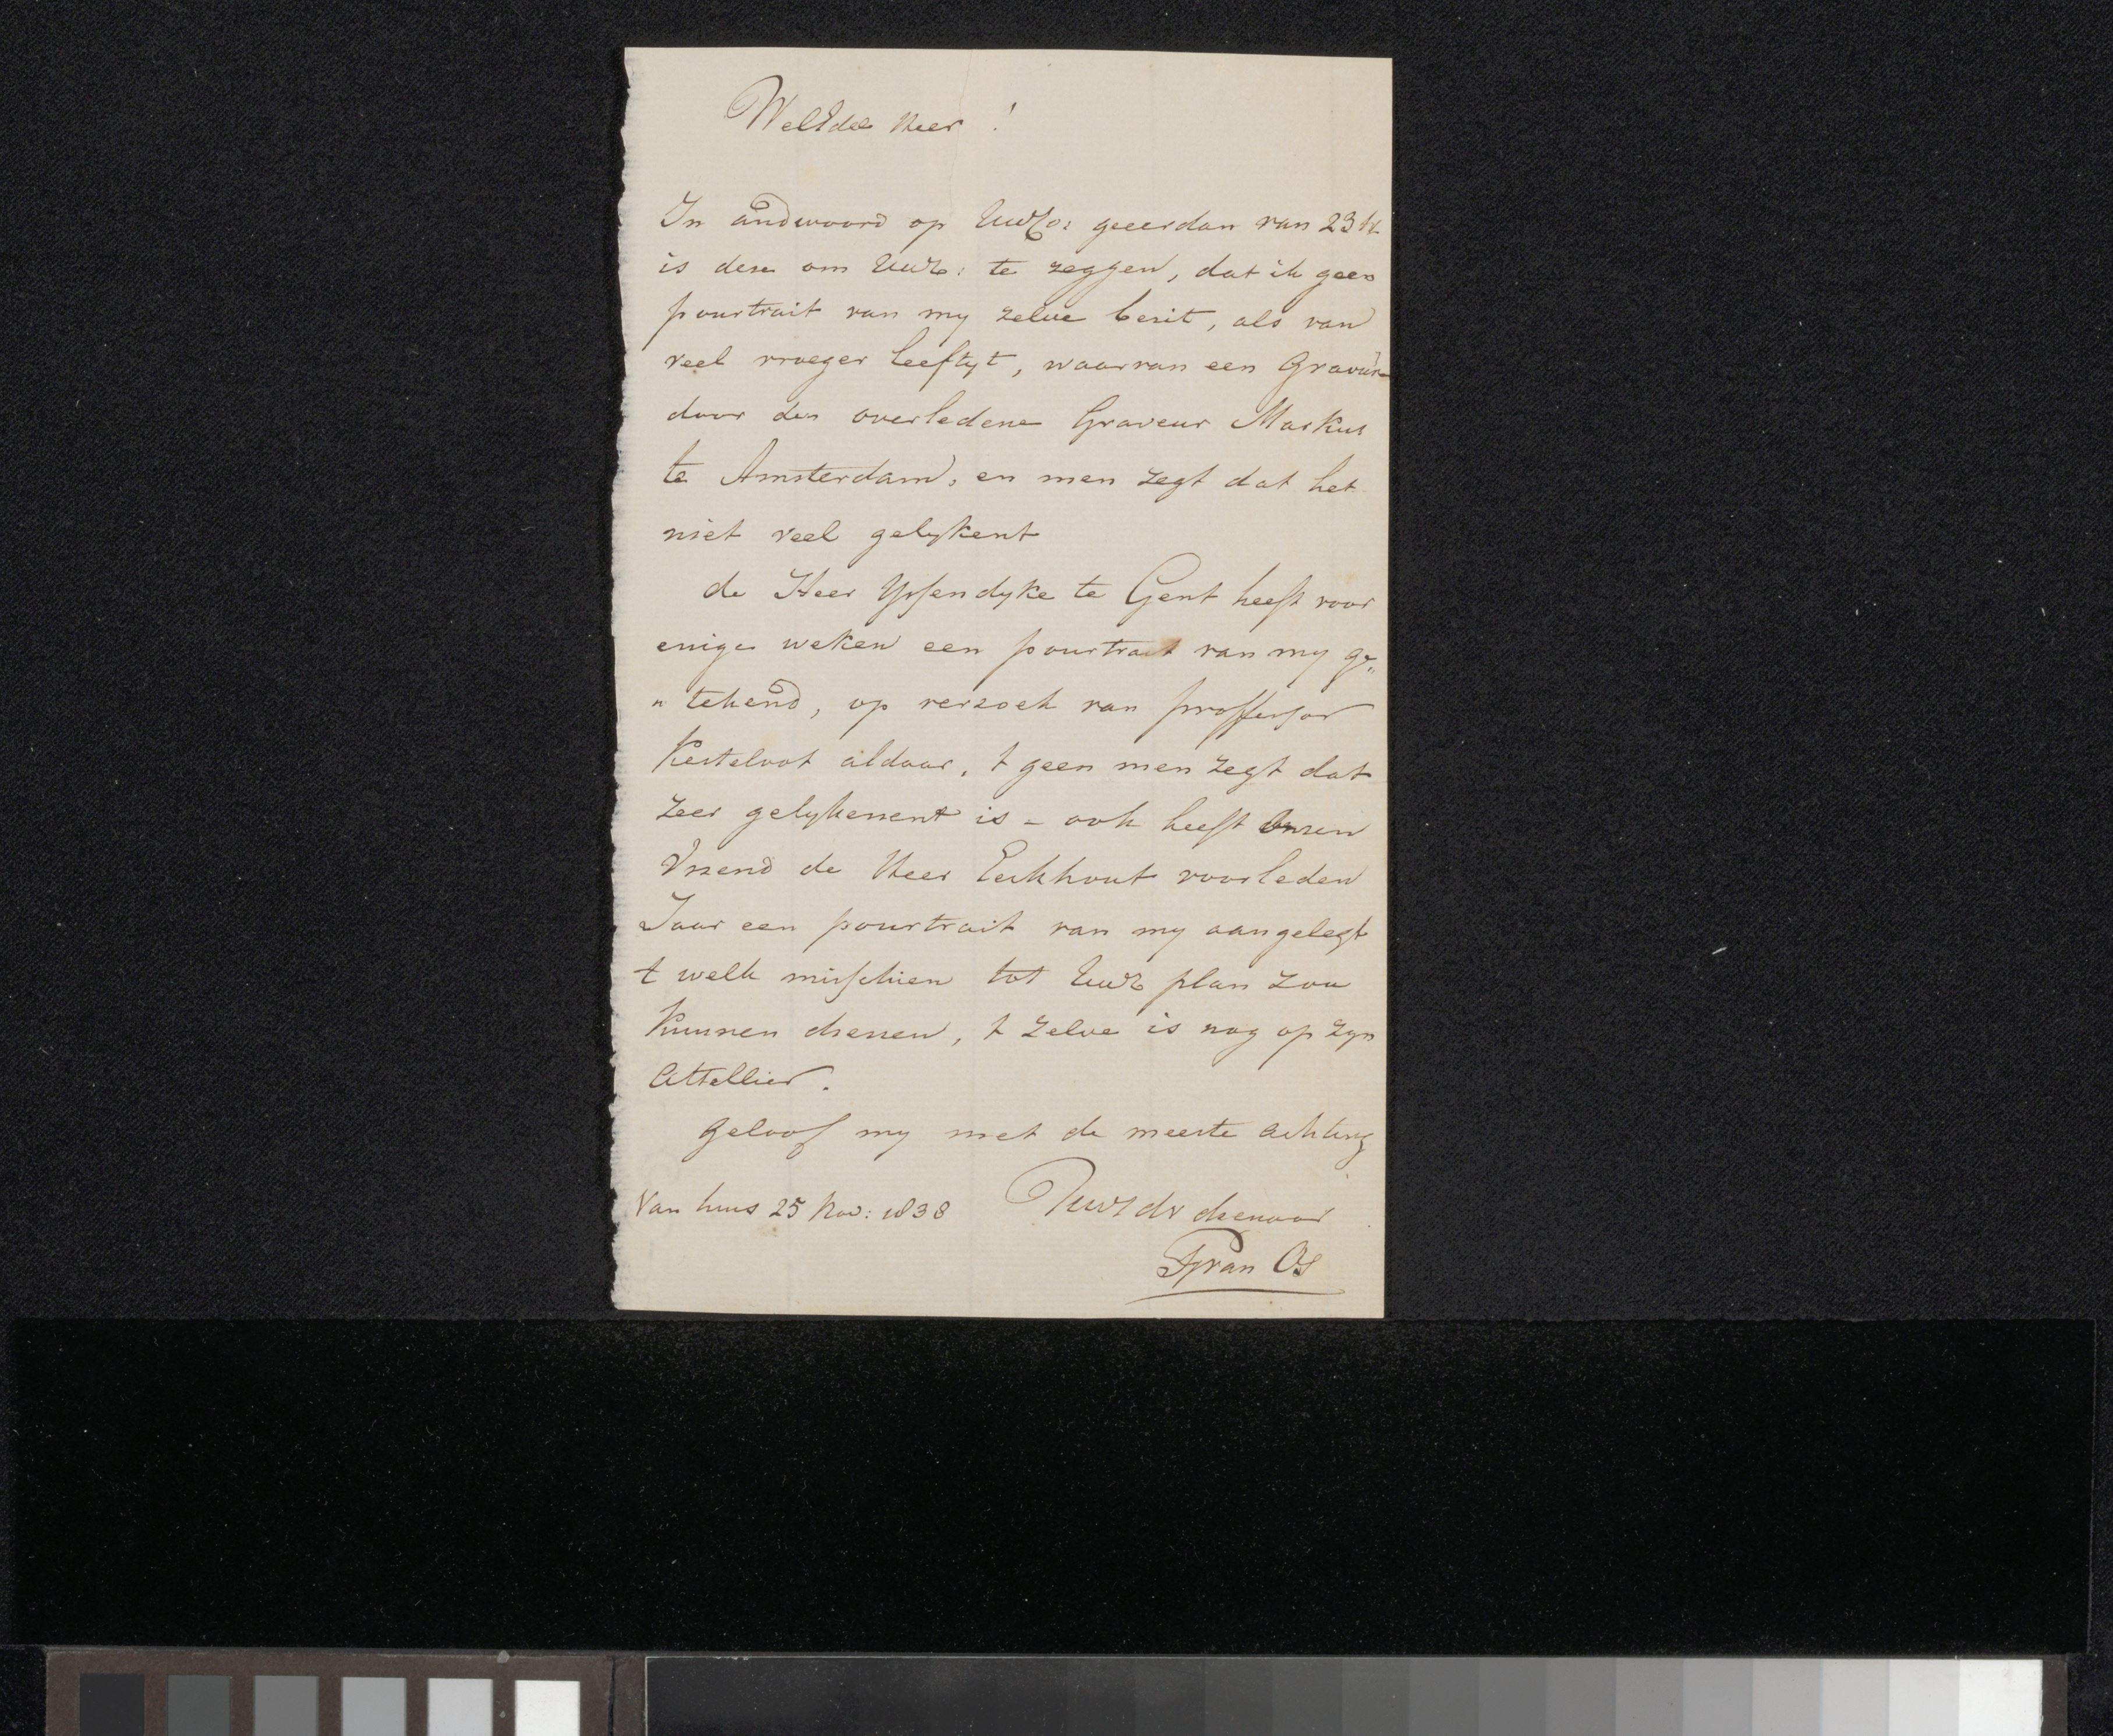 WelEdele Heer!
In andwoord op UwEd: geeerdan van 23
is dese om UwE: te zeggen, dat ik geen
pourtrait van my zelve besit, als van
veel vroeger leeftyt, waarvan een Gravure
door den overledene Graveur Markus
te Amsterdam, en men zegt dat het
niet veel gelykent
de Heer Ypsendyke te Gent heeft voor
enige weken een pourtrait van my ge„
„tekend, op versoek van proffessor
Kesteloot aldaar, t geen men zegt dat
zeer gelykenent is - ook heeft onsen
Vriend de Heer Eeckhout voorleden
Jaar een pourtrait van my aangelegt
t welk misschien tot UwE plan zou
kunnen dienen, t zelve is nog op zyn
Attellier.
geloof my met de meeste achting
Van huis 25 Nov: 1838 UwE dv dienaar
PGvan Os